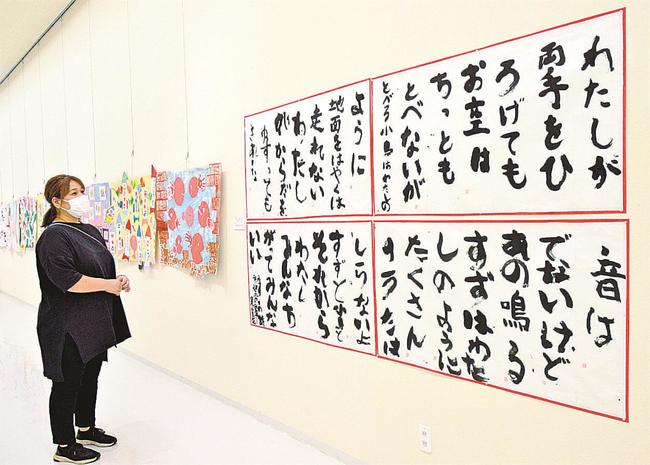 わたしが
両手をひ
ろげても
お空は
ちっとも
とべないが
とべる小鳥はわたしの
ように
地面をはやくは
走れない
わたし
がからだを
ゆすっても
きれいな
音は
でないけど
あの鳴る
すずはわた
しのように
たくさん
のうたは
しらないよ
すずと小鳥と
それから
わたし
みんなち
がってみんな
いい